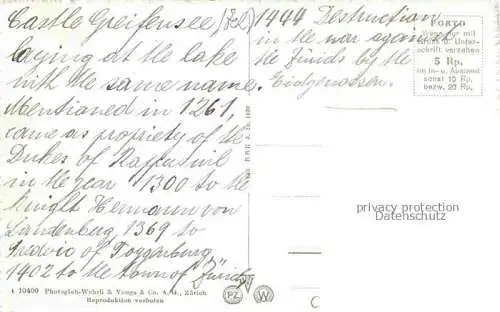 Castle Greifensee /
laying at the lake
with the same name.
Mentioned in 1261,
came as propriety of the
Dukes of
in the year 1300 to the
Knight Hermann von
Landenburg, 1369 to
of Toggenburg
1402 to the town of Zürich
1444 Destruction
in the war against
the Zürich by the
Eidgenossen.
PORTO
Wenn nur mit
Gruss u. Unter-
schrift versehen
5 Rp.
im In- u. Ausland
sonst 10 Rp.
bezw. 20 Rp.
privacy protection
Datenschutz
t 10400 Photoglob-Wehrli & Vouga & Co. A. G., Zürich
Reproduktion verboten
PZ
W
C